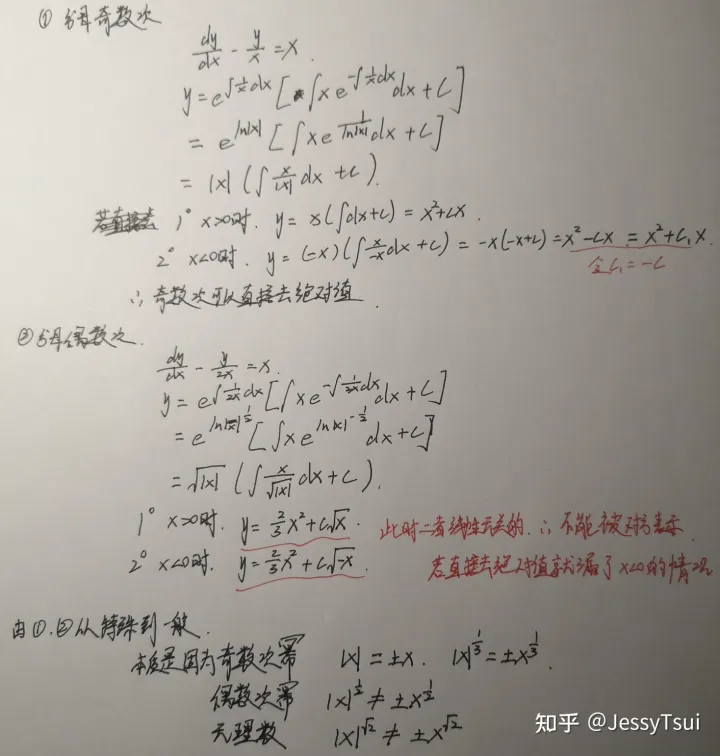 ① 分母奇数次
dy/dx - y/x = x.
y = e^{∫1/x dx} [ ∫ x e^{-∫1/x dx} dx + C ]
= e^{ln|x|} [ ∫ x e^{1/ln|x|} dx + C ]
= |x| ( ∫ x/|x| dx + C ).
若直接去 1° x>0时. y = x(∫dx+C) = x²+Cx.
2° x<0时. y = (-x)(∫ x/-x dx + C) = -x(-x+C) = x²-Cx = x²+C₁x.
令C₁=-C
∴ 奇数次可以直接去绝对值
② 分母偶数次.
dy/dx - y/2x = x.
y = e^{∫1/2x dx} [ ∫ x e^{-∫1/2x dx} dx + C ]
= e^{ln|x|^{1/2}} [ ∫ x e^{ln|x|^{-1/2}} dx + C ]
= √|x| ( ∫ x/√|x| dx + C ).
1° x>0时. y = 2/3 x² + C√x. 此时二者线性无关的. ∴ 不能被对方表示.
2° x<0时. y = 2/3 x² + C√-x. 若直接去绝对值就漏了x<0的情况
由①.②从特殊到一般.
本质是因为奇数次幂 |x| = ±x. |x|^{1/3} = ±x^{1/3}.
偶数次幂 |x|^{1/2} ≠ ±x^{1/2}
无理数 |x|^{√2} ≠ ±x^{√2}
知乎 @JessyTsui